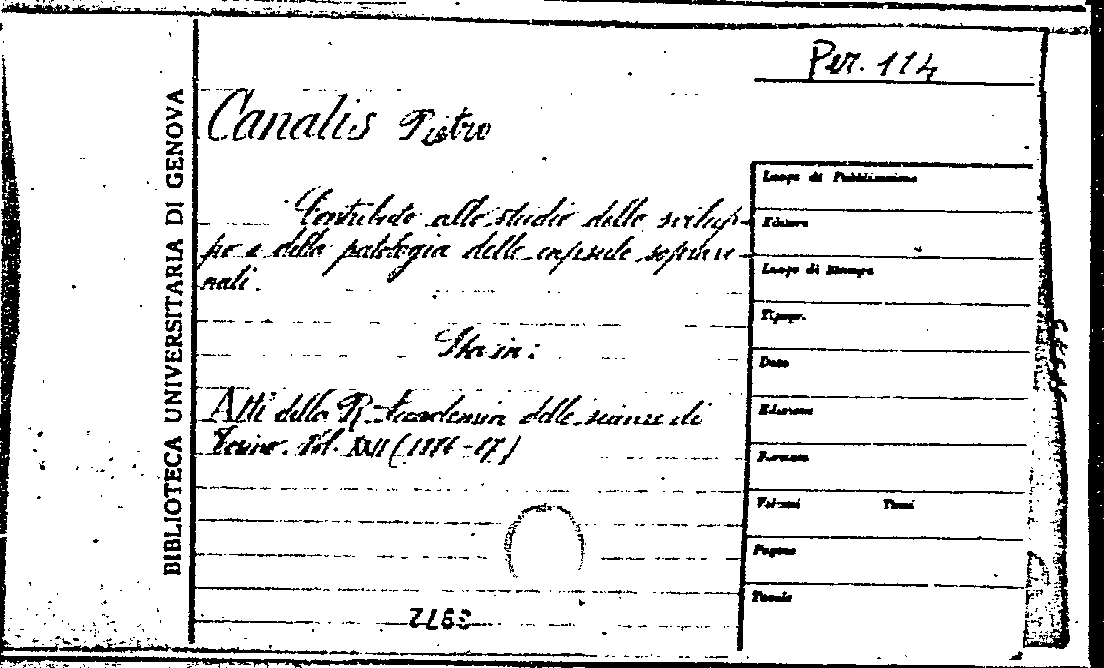 Per. 114
BIBLIOTECA UNIVERSITARIA DI GENOVA
Canalis Pietro
Contributo allo studio dello svilup-
po e della patologia delle capsule soprare-
nali.
Sta in:
Atti della R. Accademia delle scienze di
Torino. Vol. XXII (1886-87)
Luogo di Pubblicazione
Editore
Luogo di Stampa
Tipogr.
Data
Edizione
Formato
Volumi Tomi
Pagine
Tavole